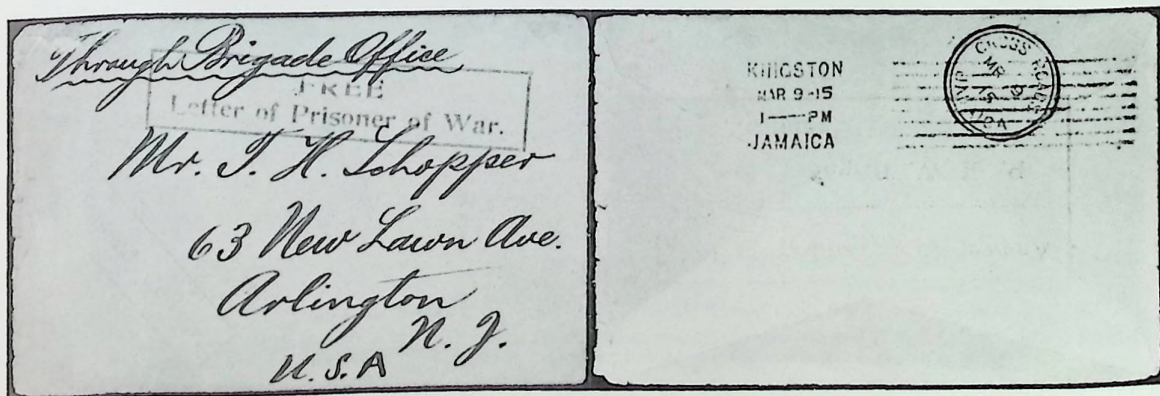 Through Brigade Office
FREE
Letter of Prisoner of War.
Mr. T. H. Schopper
63 New Lawn Ave.
Arlington
N. J.
U.S.A
KINGSTON
MAR 9-15
1----PM
JAMAICA
CROSS ROADS
MR 9
15
JAMAICA